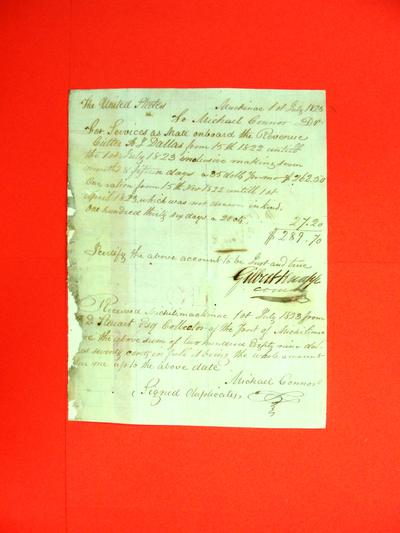 The United States
Mackinac 1st July 1823
To Michael Connor Dr
for Services as Mate onboard the Revenue
Cutter A. J. Dallas from 15th 1822 untill
the 1st July 1823 inclusive making seven
months & fifteen days a 35 dolls pr mo $262.50
One ration from 15th Nov 1822 untill 1st
april 1823, which was not drawn in kind.
One hundred thirty six days a 20 cts. 27.20
$289.70
I certify the above account to be Just and true
Received Michilimackinac 1st July 1823 from
Stuart Esq Collector of the Port of Michilima
the above sum of two hundred Eighty nine dol
seventy cents in full, it being the whole amount
me up to the above date
Michael Connor
(Signed duplicates)